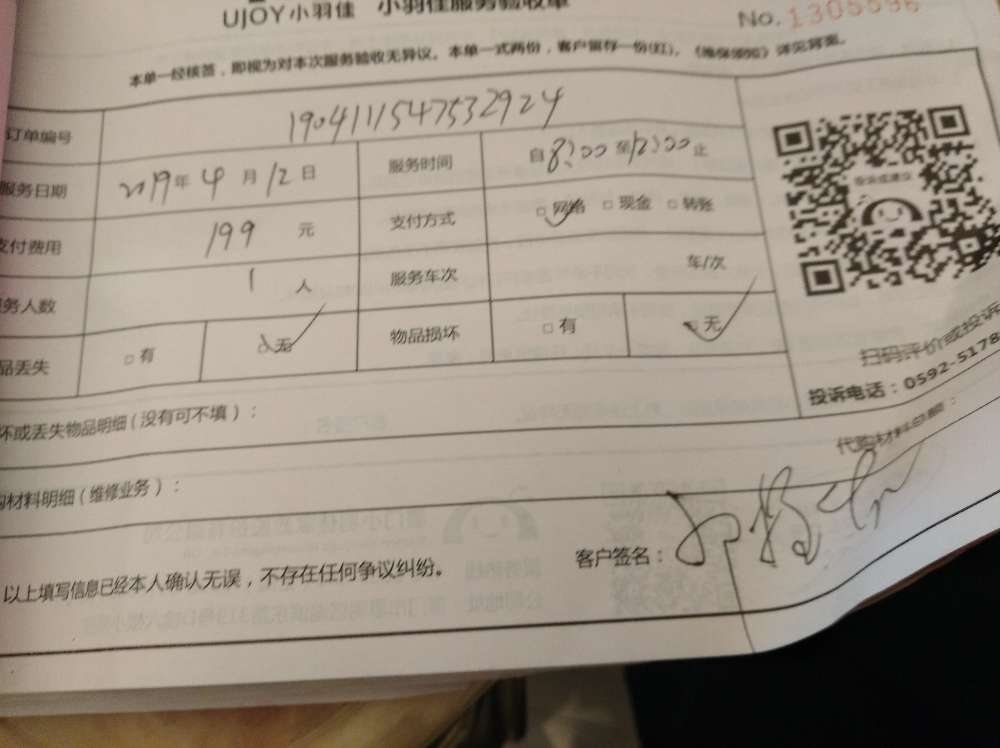 UJOY小羽佳 小羽佳服务验收单
No.1305596
本单一经核签，即视为对本次服务验收无异议。本单一式两份，客户留存一份(红)，《维保须知》详见背面。
订单编号 1904111547532924
服务日期 2019年4月12日 服务时间 自8:00至12:00止
支付费用 199元 支付方式 □网络 □现金 □转账
服务人数 1人 服务车次 车/次
品丢失 □有 □无 物品损坏 □有 □无
投诉或建议
扫码评价或投诉
投诉电话：0592-5178
坏或丢失物品明细(没有可不填)：
代购材料总额：
购材料明细(维修业务)：
以上填写信息已经本人确认无误，不存在任何争议纠纷。 客户签名：